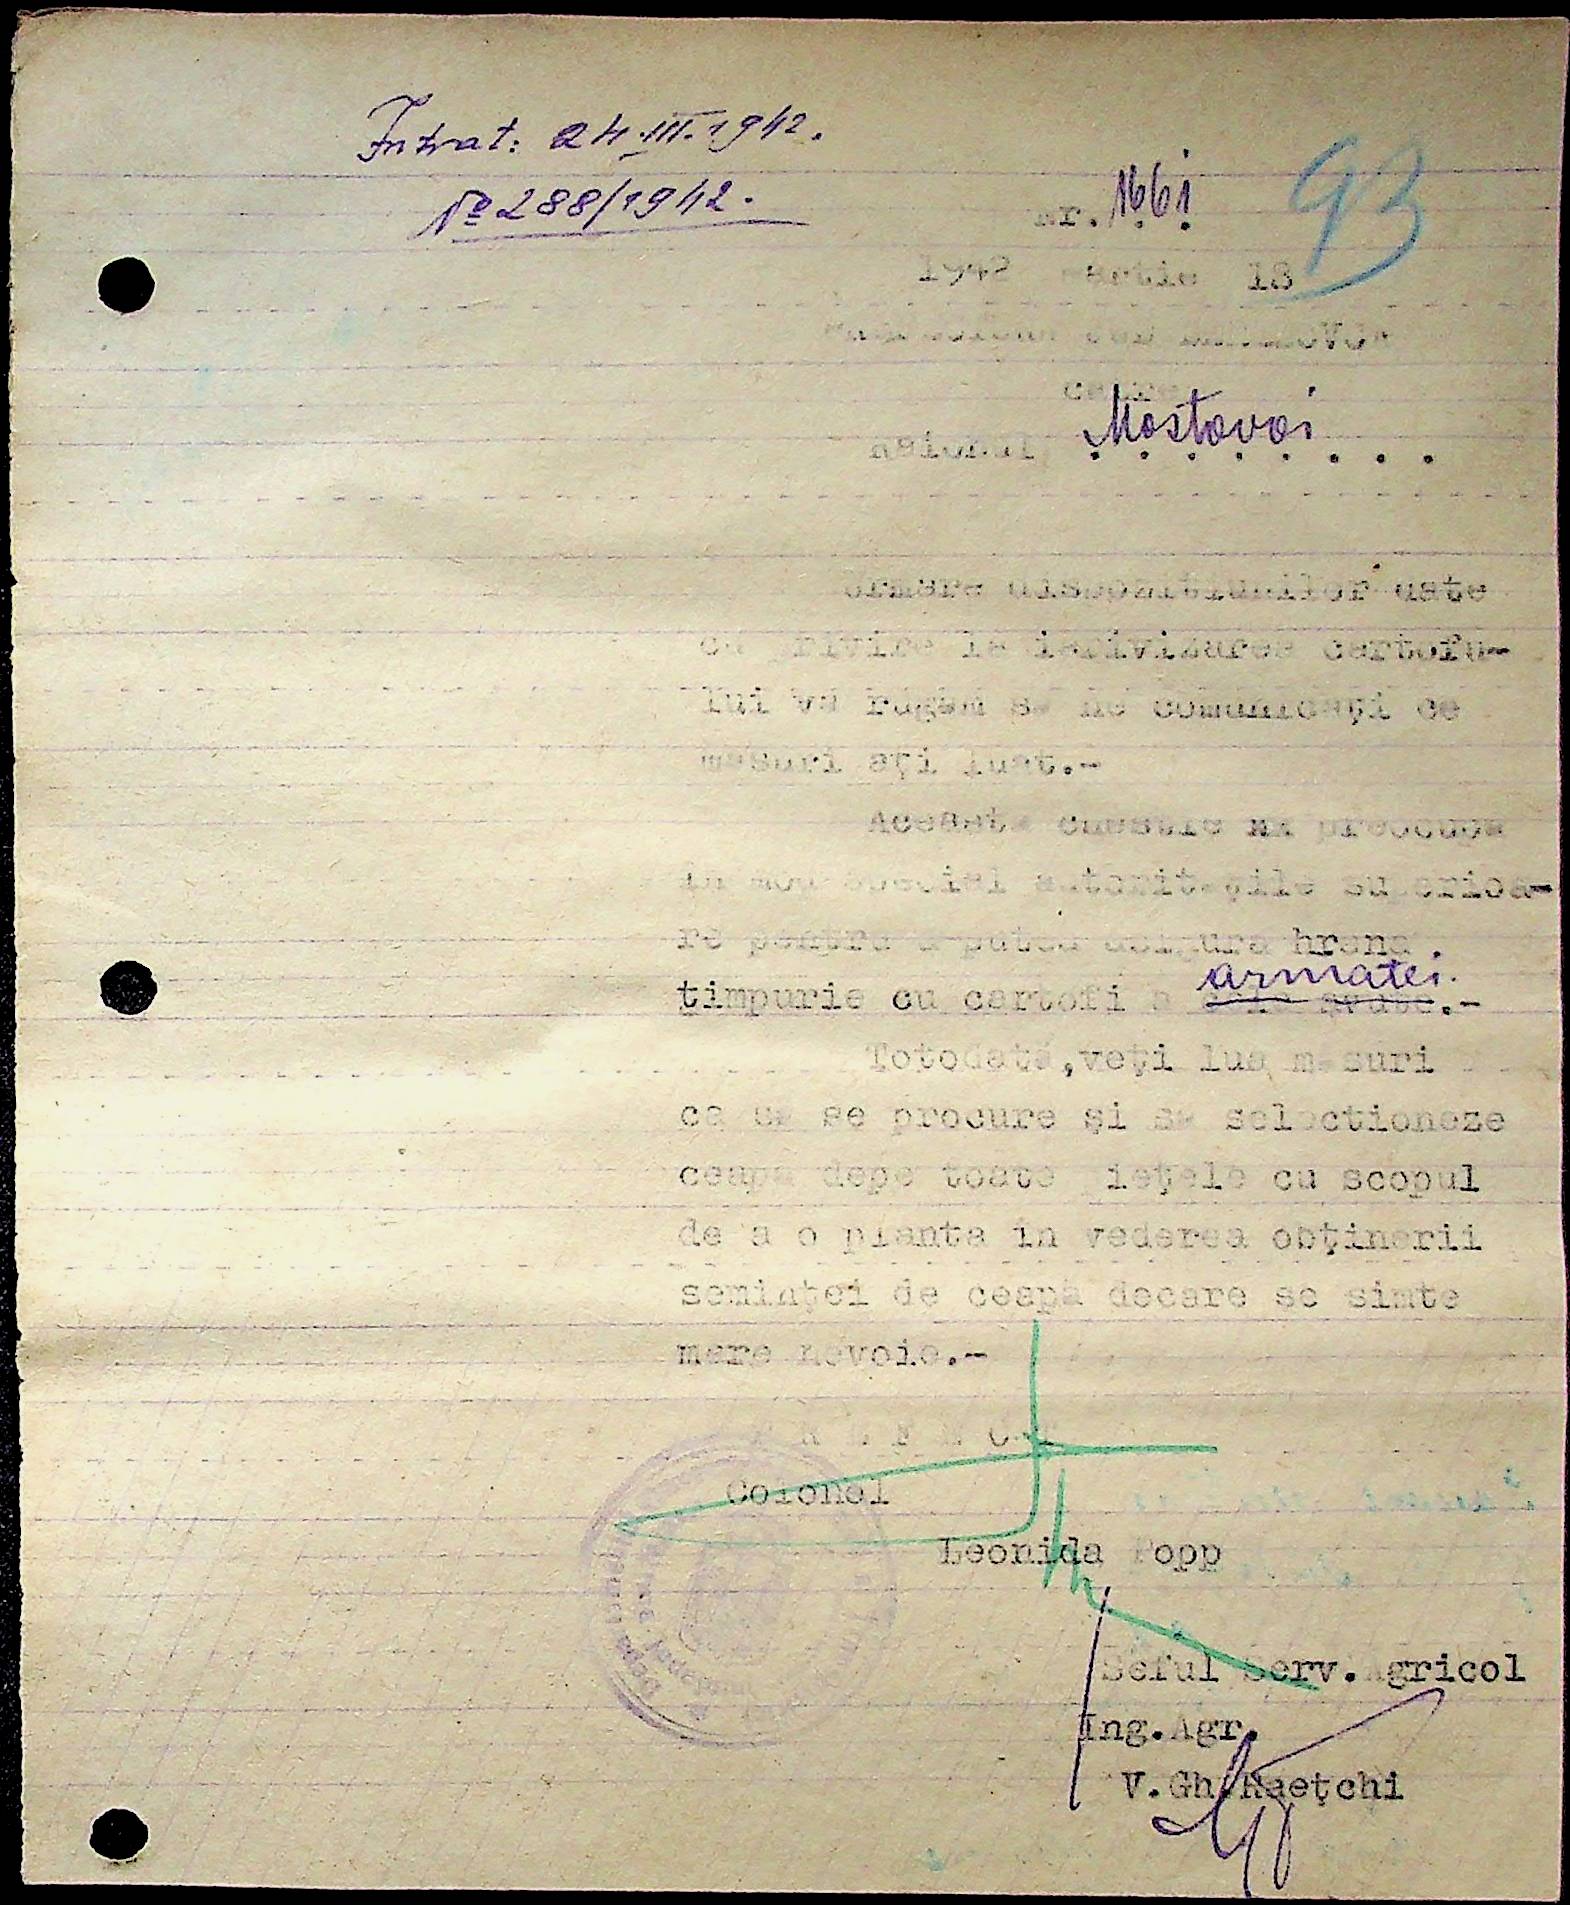 Intrat: 24.III.1942.
№ 288/1942.
93
nr. 1661
1942 Martie 18
către
Raionul Mostovoi
Urmare dispozițiunilor date
cu privire la iarovizarea cartofu-
lui vă rugăm să ne comunicați ce
măsuri ați luat.-
Aceasta chestie preocupă
în mod special autoritățile superioa-
re pentru a putea asigura hrana
timpurie cu cartofi a armatei.-
Totodată, veți lua măsuri
ca să se procure și să selectioneze
ceapa depe toate piețele cu scopul
de a o planta în vederea obținerii
seminței de ceapă decare se simte
mare nevoie.-
P R E F E C T
Colonel
Leonida Popp
Seful Serv. Agricol
Ing. Agr.
V. Gh. Raețchi